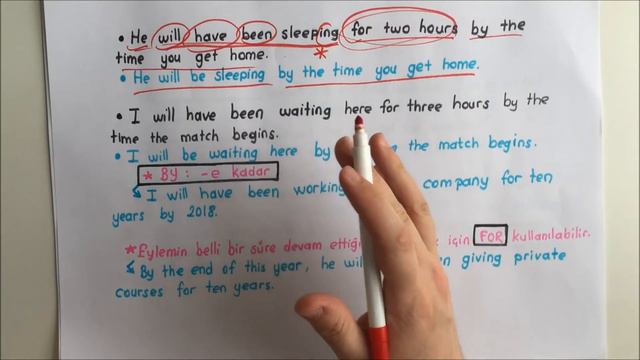 • He will have been sleeping for two hours by the
time you get home. *
• He will be sleeping by the time you get home.
• I will have been waiting here for three hours by the
time the match begins.
• I will be waiting here by the match begins.
* BY : -e kadar
I will have been working company for ten
years by 2018.
* Eylemin belli bir süre devam için FOR kullanılabilir.
By the end of this year, he giving private
courses for ten years.